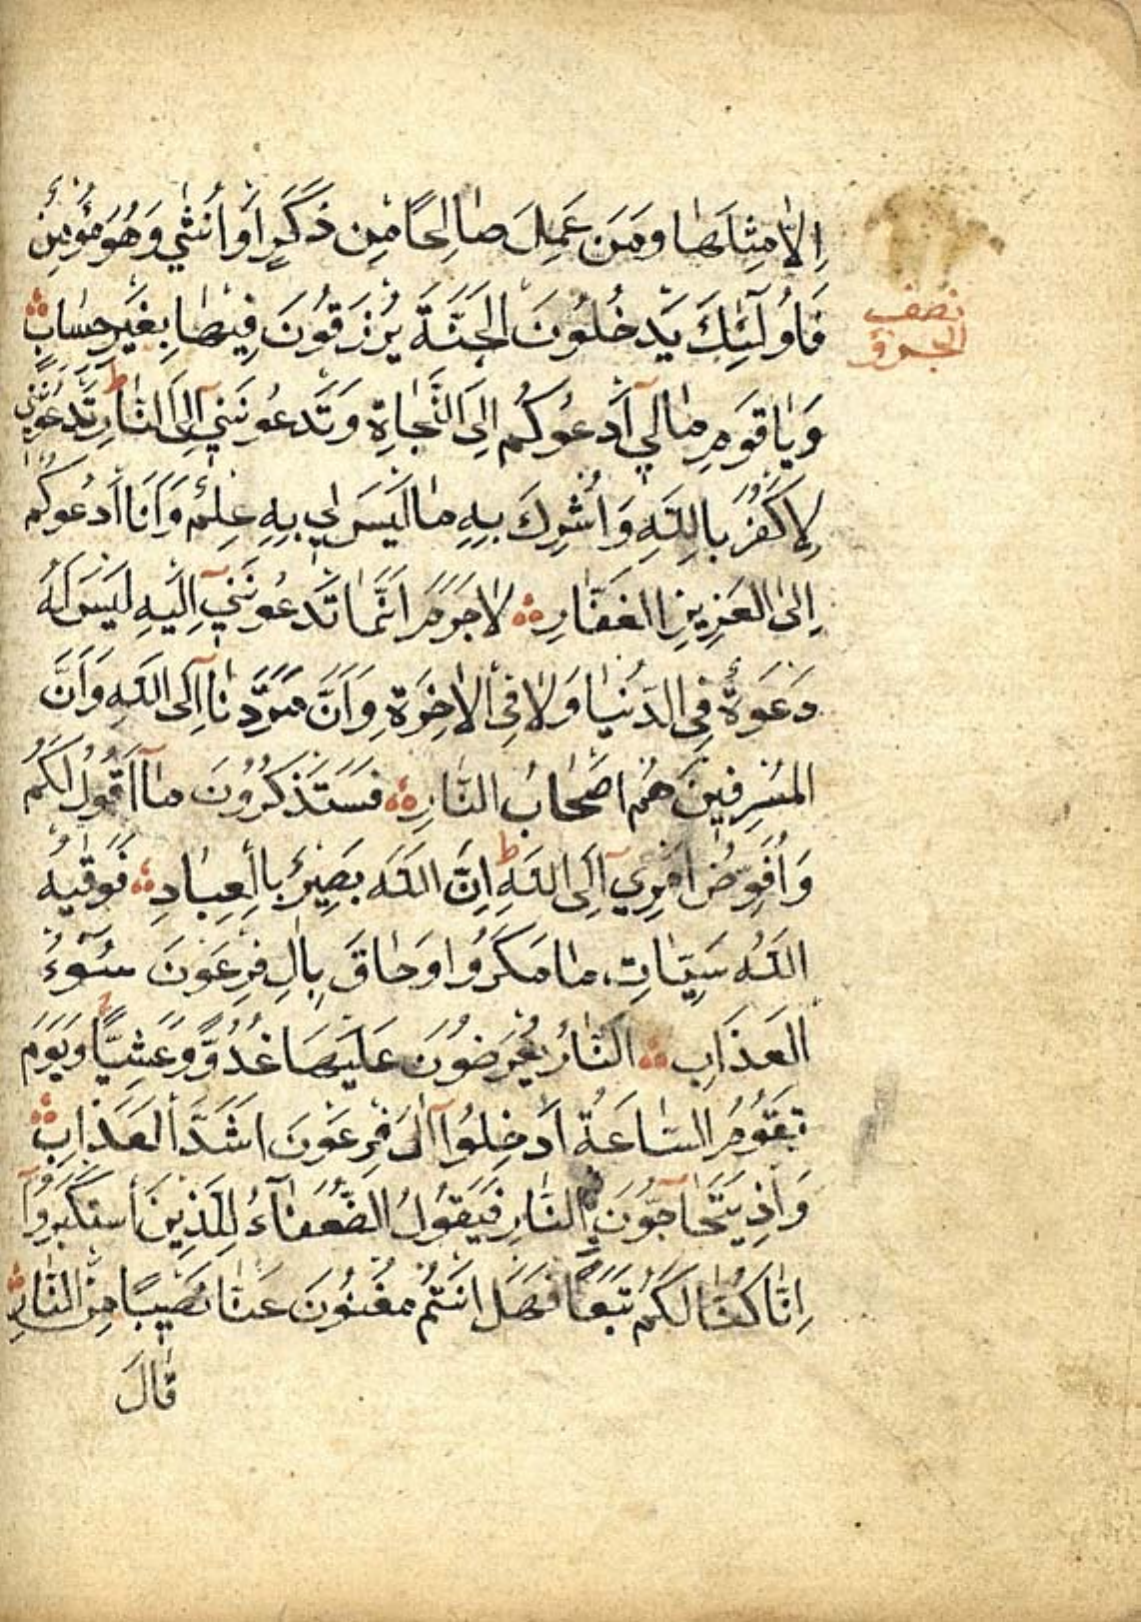 اِلَّا مِثْلَهَا وَمَنْ عَمِلَ صَالِحًا مِنْ ذَكَرٍ اَوْ اُنْثٰي وَهُوَ مُؤْمِنٌ
فَاُولٰٓئِكَ يَدْخُلُونَ الْجَنَّةَ يُرْزَقُونَ فِيْهَا بِغَيْرِ حِسَابٍ
نصف
الجزؤ
وَيَا قَوْمِ مَا لِي اَدْعُوكُمْ اِلَي النَّجَاةِ وَتَدْعُونَنِي اِلَي النَّارِ تَدْعُونَنِي
لِاَكْفُرَ بِاللّٰهِ وَاُشْرِكَ بِهِ مَا لَيْسَ لِي بِهِ عِلْمٌ وَاَنَا اَدْعُوكُمْ
اِلَي الْعَزِيزِ الْغَفَّارِ لَا جَرَمَ اَنَّمَا تَدْعُونَنِي اِلَيْهِ لَيْسَ لَهُ
دَعْوَةٌ فِي الدُّنْيَا وَلَا فِي الْاٰخِرَةِ وَاَنَّ مَرَدَّنَا اِلَي اللّٰهِ وَاَنَّ
الْمُسْرِفِينَ هُمْ اَصْحَابُ النَّارِ فَسَتَذْكُرُونَ مَا اَقُولُ لَكُمْ
وَاُفَوِّضُ اَمْرِي اِلَي اللّٰهِ اِنَّ اللّٰهَ بَصِيرٌ بِالْعِبَادِ فَوَقٰيهُ
اللّٰهُ سَيِّئَاتِ مَا مَكَرُوا وَحَاقَ بِاٰلِ فِرْعَوْنَ سُوٓءُ
الْعَذَابِ اَلنَّارُ يُعْرَضُونَ عَلَيْهَا غُدُوًّا وَعَشِيًّا وَيَوْمَ
تَقُومُ السَّاعَةُ اَدْخِلُوا اٰلَ فِرْعَوْنَ اَشَدَّ الْعَذَابِ
وَاِذْ يَتَحَاجُّونَ فِي النَّارِ فَيَقُولُ الضُّعَفَاءُ لِلَّذِينَ اسْتَكْبَرُوا
اِنَّا كُنَّا لَكُمْ تَبَعًا فَهَلْ اَنْتُمْ مُغْنُونَ عَنَّا نَصِيبًا مِنَ النَّارِ
قَالَ